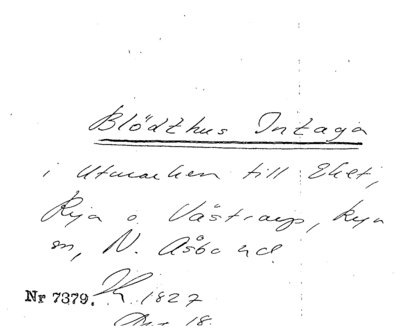 Blödthus Intaga
i Utmarken till Eket,
Rya o. Västraup, Rya
sn, N. Åsbo hd.
Nr 7379. 1827
18.